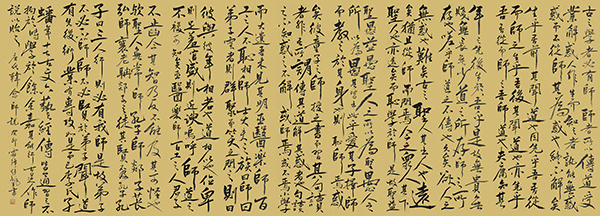 古之學者必有師師者所以傳道受
業解惑也人非生而知之者孰能無惑
惑而不從師其為惑也終不解矣
生乎吾前其聞道也固先乎吾吾從
而師之生乎吾後其聞道也亦先乎
吾吾從而師之吾師道也夫庸知其
年之先後生於吾乎是故無貴無
賤無長無少道之所存師之所
存也嗟乎師道之不傳也久矣欲人之
無惑也難矣古之聖人其出人也遠
矣猶且從師而問焉今之眾人其下
聖人也亦遠矣而恥學於師是故
聖益聖愚益愚聖人之所以為聖愚人之
所以為愚其皆出於此乎愛其子擇師
而教之於其身也則恥師焉惑
矣彼童子之師授之書而習其句讀
者非吾所謂傳其道解其惑者也句讀
之不知惑之不解或師焉或不焉小學
而大遺吾未見其明也巫醫樂師百
工之人不恥相師士大夫之族曰師曰
弟子云者則群聚而笑之問之則曰
彼與彼年相若也道相似也位卑
則足羞官盛則近諛嗚呼師道之
不復可知矣巫醫樂師百工之人君子
不齒今其智乃反不能及其可怪也
歟聖人無常師孔子師郯子萇
弘師襄老聃郯子之徒其賢不及孔
子孔子曰三人行則必有我師是故弟子
不必不如師師不必賢於弟子聞道
有先後術業有專攻如是而已李氏子
蟠年十七好古文六藝經傳皆通習之不
拘於時學於余余嘉其能行古道作師
說以貽之 唐韓愈師說